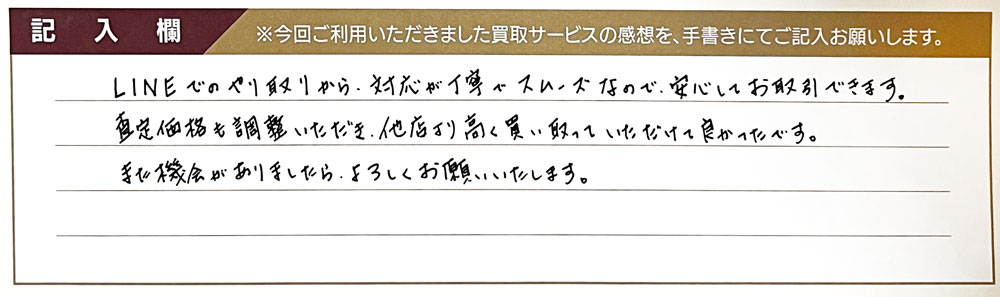 記入欄
※今回ご利用いただきました買取サービスの感想を、手書きにてご記入お願いします。
LINEでのやり取りから、対応が丁寧でスムーズなので、安心してお取引できます。
査定価格も調整いただき、他店より高く買い取っていただけて良かったです。
また機会がありましたら、よろしくお願いいたします。